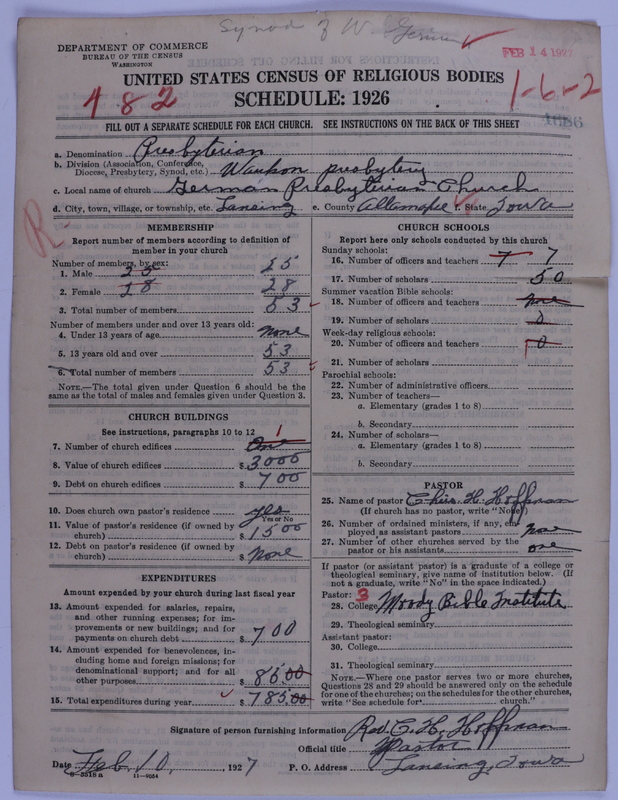 Synod of W. German
DEPARTMENT OF COMMERCE
BUREAU OF THE CENSUS
WASHINGTON
FEB 14 1927
UNITED STATES CENSUS OF RELIGIOUS BODIES
SCHEDULE: 1926
482
1-6-2
4686
FILL OUT A SEPARATE SCHEDULE FOR EACH CHURCH. SEE INSTRUCTIONS ON THE BACK OF THIS SHEET
a. Denomination Presbyterian
b. Division (Association, Conference, Diocese, Presbytery, Synod, etc.) Waukon presbytery
c. Local name of church German Presbyterian Church
d. City, town, village, or township, etc. Lansing e. County Allamakee f. State Iowa
R.
MEMBERSHIP
Report number of members according to definition of
member in your church
Number of members, by sex:
1. Male 35 25
2. Female 18 28
3. Total number of members 53
Number of members under and over 13 years old:
4. Under 13 years of age none
5. 13 years old and over 53
6. Total number of members 53
NOTE.—The total given under Question 6 should be the
same as the total of males and females given under Question 3.
CHURCH BUILDINGS
See instructions, paragraphs 10 to 12
7. Number of church edifices One 1
8. Value of church edifices $ 3000
9. Debt on church edifices $ 700
10. Does church own pastor's residence yes
Yes or No
11. Value of pastor's residence (if owned by
church) $ 1500
12. Debt on pastor's residence (if owned by
church) $ None
EXPENDITURES
Amount expended by your church during last fiscal year
13. Amount expended for salaries, repairs,
and other running expenses; for im-
provements or new buildings; and for
payments on church debt $ 700
14. Amount expended for benevolences, in-
cluding home and foreign missions; for
denominational support; and for all
other purposes $ 85.00
15. Total expenditures during year $ 785.00
CHURCH SCHOOLS
Report here only schools conducted by this church
Sunday schools:
16. Number of officers and teachers 7 7
17. Number of scholars 50
Summer vacation Bible schools:
18. Number of officers and teachers none
19. Number of scholars 0
Week-day religious schools:
20. Number of officers and teachers 0
21. Number of scholars
Parochial schools:
22. Number of administrative officers
23. Number of teachers—
a. Elementary (grades 1 to 8)
b. Secondary
24. Number of scholars—
a. Elementary (grades 1 to 8)
b. Secondary
PASTOR
25. Name of pastor Chris. H. Hoffman
(If church has no pastor, write "None")
26. Number of ordained ministers, if any, em-
ployed as assistant pastors none
27. Number of other churches served by the
pastor or his assistants one
If pastor (or assistant pastor) is a graduate of a college or
theological seminary, give name of institution below. (If
not a graduate, write "No" in the space indicated.)
Pastor: 3
28. College Moody Bible Institute
29. Theological seminary
Assistant pastor:
30. College
31. Theological seminary
NOTE.—Where one pastor serves two or more churches,
Questions 28 and 29 should be answered only on the schedule
for one of the churches; on the schedules for the other churches,
write "See schedule for church."
Signature of person furnishing information Rev. C. H. Hoffman
Official title Pastor
Date Feb. 10, 1927 P. O. Address Lansing, Iowa
8-3518 a 11-9054